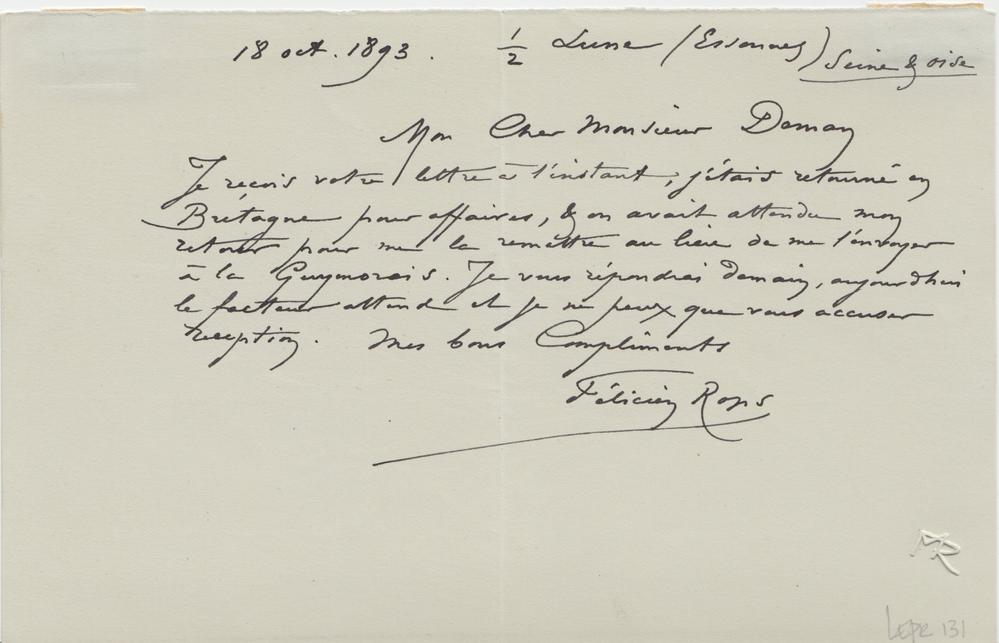 18 oct. 1893. ½ Lune (Essonnes) Seine & oise
Mon Cher Monsieur Deman
Je reçois votre lettre à l'instant; j'étais retourné en
Bretagne pour affaires, & on avait attendu mon
retour pour me la remettre au lieu de me l'envoyer
à la Guymorais. Je vous répondrai demain, aujourd'hui
le facteur attend et je ne peux que vous accuser
réception. Mes bons Compliments
Félicien Rops
MR
LEPR 131